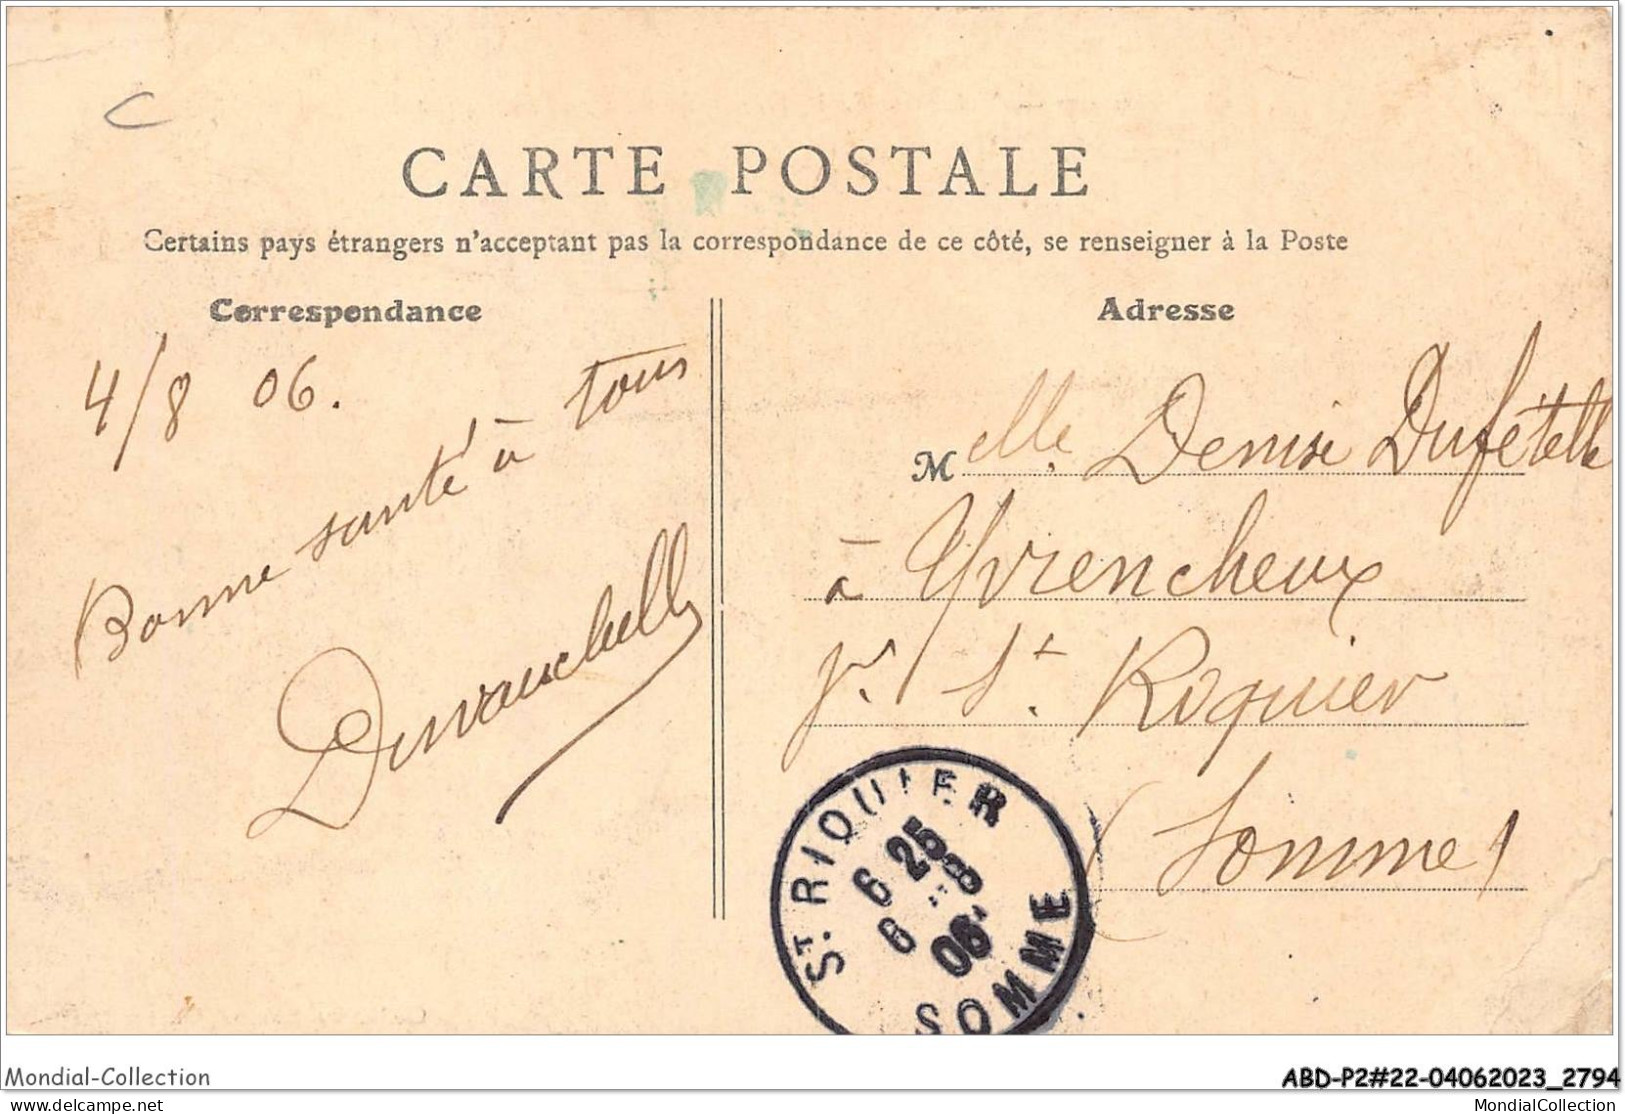 C
CARTE POSTALE
Certains pays étrangers n'acceptant pas la correspondance de ce côté, se renseigner à la Poste
Correspondance
4/8 06.
Bonne santé à tous
Devauchelle
Adresse
Melle. Denise Dufételle
à Yvrencheux
pr. St. Riquier
(Somme)
ST. RIQUIER
6 25
6 -8
06
SOMME
Mondial-Collection
ABD-P2#22-04062023_2794
delcampe.net
MondialCollection